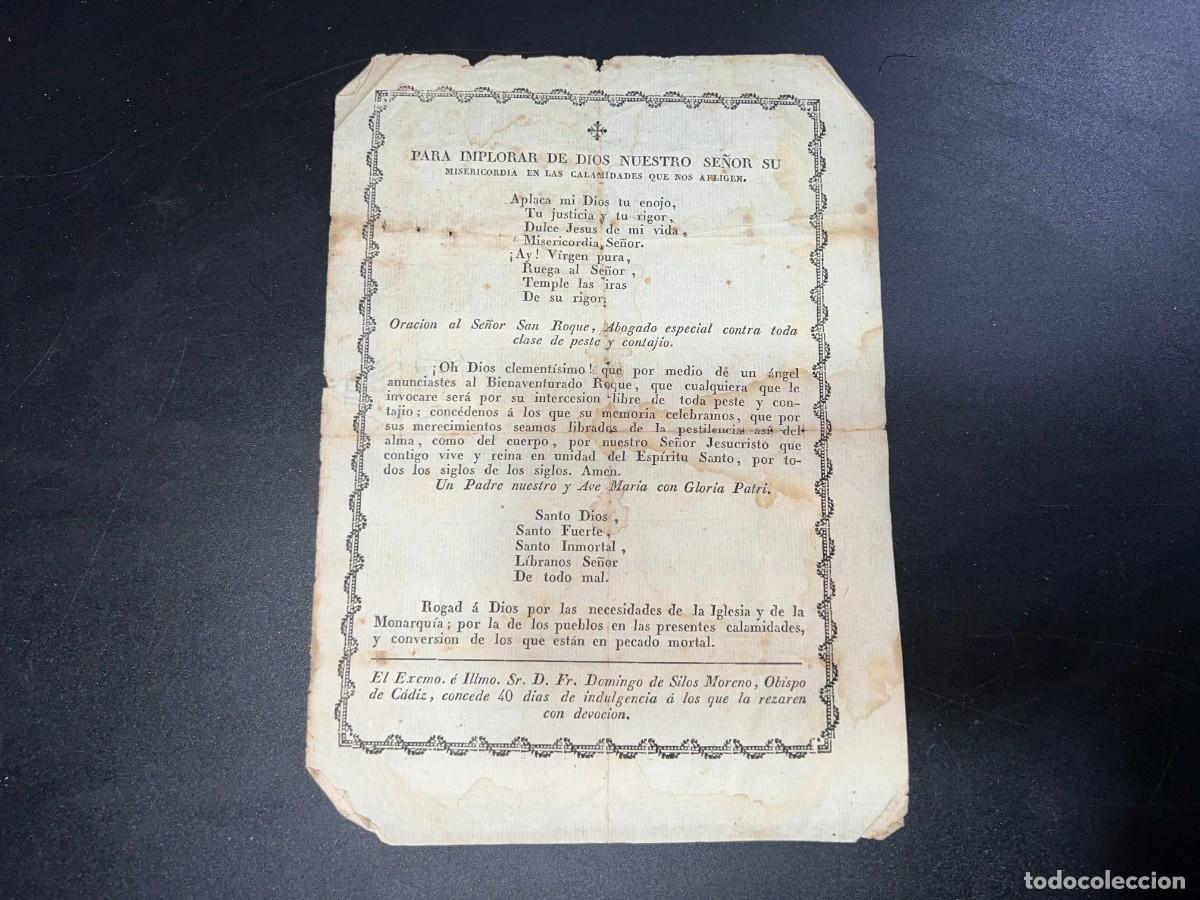 PARA IMPLORAR DE DIOS NUESTRO SEÑOR SU
MISERICORDIA EN LAS CALAMIDADES QUE NOS AFLIGEN.
Aplaca mi Dios tu enojo,
Tu justicia y tu rigor,
Dulce Jesus de mi vida,
Misericordia, Señor.
¡Ay! Vírgen pura,
Ruega al Señor,
Temple las iras
De su rigor.
Oracion al Señor San Roque, Abogado especial contra toda
clase de peste y contajio.
¡Oh Dios clementísimo! que por medio de un ángel
anunciastes al Bienaventurado Roque, que cualquiera que le
invocare será por su intercesion libre de toda peste y con-
tajio; concédenos á los que su memoria celebramos, que por
sus merecimientos seamos librados de la pestilencia así del
alma, como del cuerpo, por nuestro Señor Jesucristo que
contigo vive y reina en unidad del Espíritu Santo, por to-
dos los siglos de los siglos. Amen.
Un Padre nuestro y Ave María con Gloria Patri.
Santo Dios,
Santo Fuerte,
Santo Inmortal,
Líbranos Señor
De todo mal.
Rogad á Dios por las necesidades de la Iglesia y de la
Monarquía; por la de los pueblos en las presentes calamidades,
y conversion de los que están en pecado mortal.
El Excmo. é Illmo. Sr. D. Fr. Domingo de Silos Moreno, Obispo
de Cádiz, concede 40 dias de indulgencia á los que la rezaren
con devocion.
todocoleccion